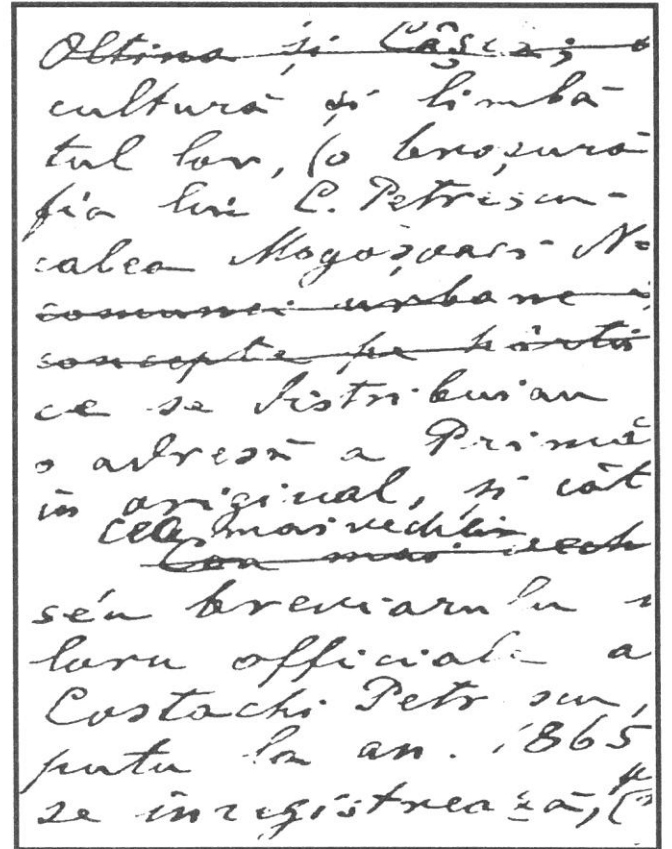 Oltina și Câșla;
cultură și limbă
tul lor, (o broșură
fia lui C. Petrescu-
calea Mogoșoaei N
comunei urbane
concepte pe hârtie
ce se distribuiau
o adresă a Primă
în original, și cât
cele mai vechi
Cea mai vech
séu breviarulu
loru officiale a
Costachi Petrescu,
putu la an. 1865
se înregistrează,